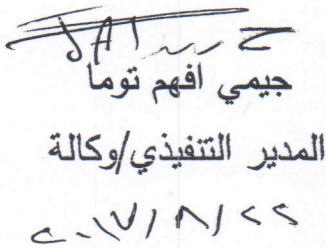 جيمي افهم توما
المدير التنفيذي/وكالة
٢٠١٧/٨/٢٢